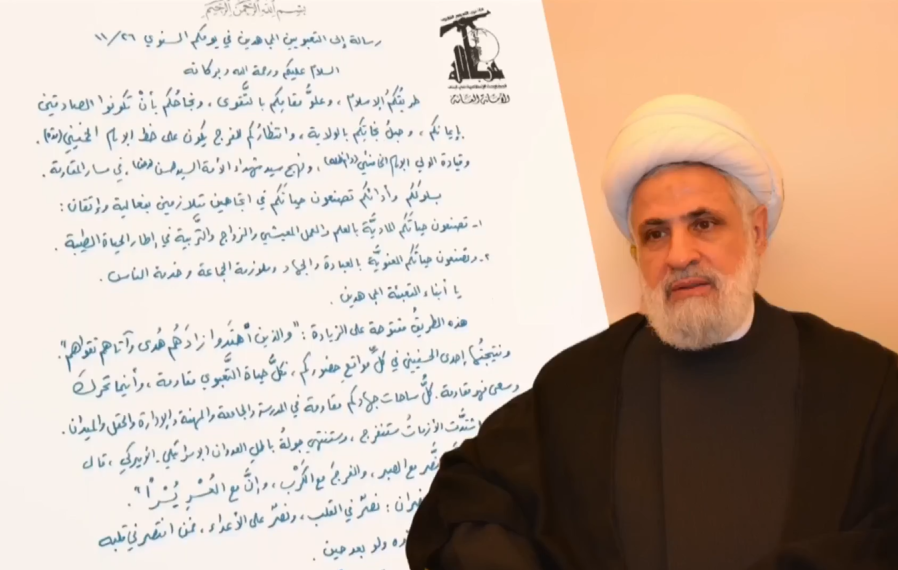 بسم الله الرحمن الرحيم
رسالة إلى التعبويين المجاهدين في يومكم السنوي ٢٦/١١
السلام عليكم ورحمة الله وبركاته
الأمانة العامة
طريقُكُم الإسلام، وعلوُّ مقامِكم بالتَّقوى، ونجاحُكُم بأن تكونوا الصادقين
بإيمانكم، وحبلُ نجاتِكم بالولاية، وانتظارُكم للفرج يكون على خط الإمام الخميني(قده)
وقيادة الولي الإمام الخامنئي(دام ظله)، ونهج سيد شهداء الأمة السيد حسن (رض) في مسار المقاومة.
بسلوكُكم وأدائكم تصنعون حياتَكُم في اتجاهين متلازمين بفعالية وإتقان:
١- تصنعون حياتَكُم الماديَّة بالعلم والعمل المعيشي والزواج والتَّربية في إطار الحياة الطيبة.
٢- وتصنعون حياتَكُم المعنويَّة بالعبادة والجهاد وملازمة الجماعة وخدمة الناس.
يا أبناء التعبئة المجاهدين.
هذه الطريقُ مفتوحة على الزيادة: "والذين اهتَدَوا زادَهُم هُدى وآتاهم تقواهم".
ونتيجتُها إحدى الحسنيين في كلِّ مواقع حضوركم، فكلُّ حياة التَّعبوي مقاومة، وأينما تحرَّك
وسعى فهو مقاومة. كلُّ ساحات جهادكم مقاومة في المدرسة والجامعة والمهنة والإدارة والحقل والميدان.
اشتدَّت الأزماتُ ستنفرج، وستنتهي جولةُ باطل العدوان الإسرائيلي الأميركي، قال
مع الصبر، والفرجُ مع الكَرْب، وإنَّ مع العُسْرِ يُسْراً".
: نصرٌ في القلب، ونصرٌ على الأعداء، فمن انتصر في قلبه
ولو بعد حين.